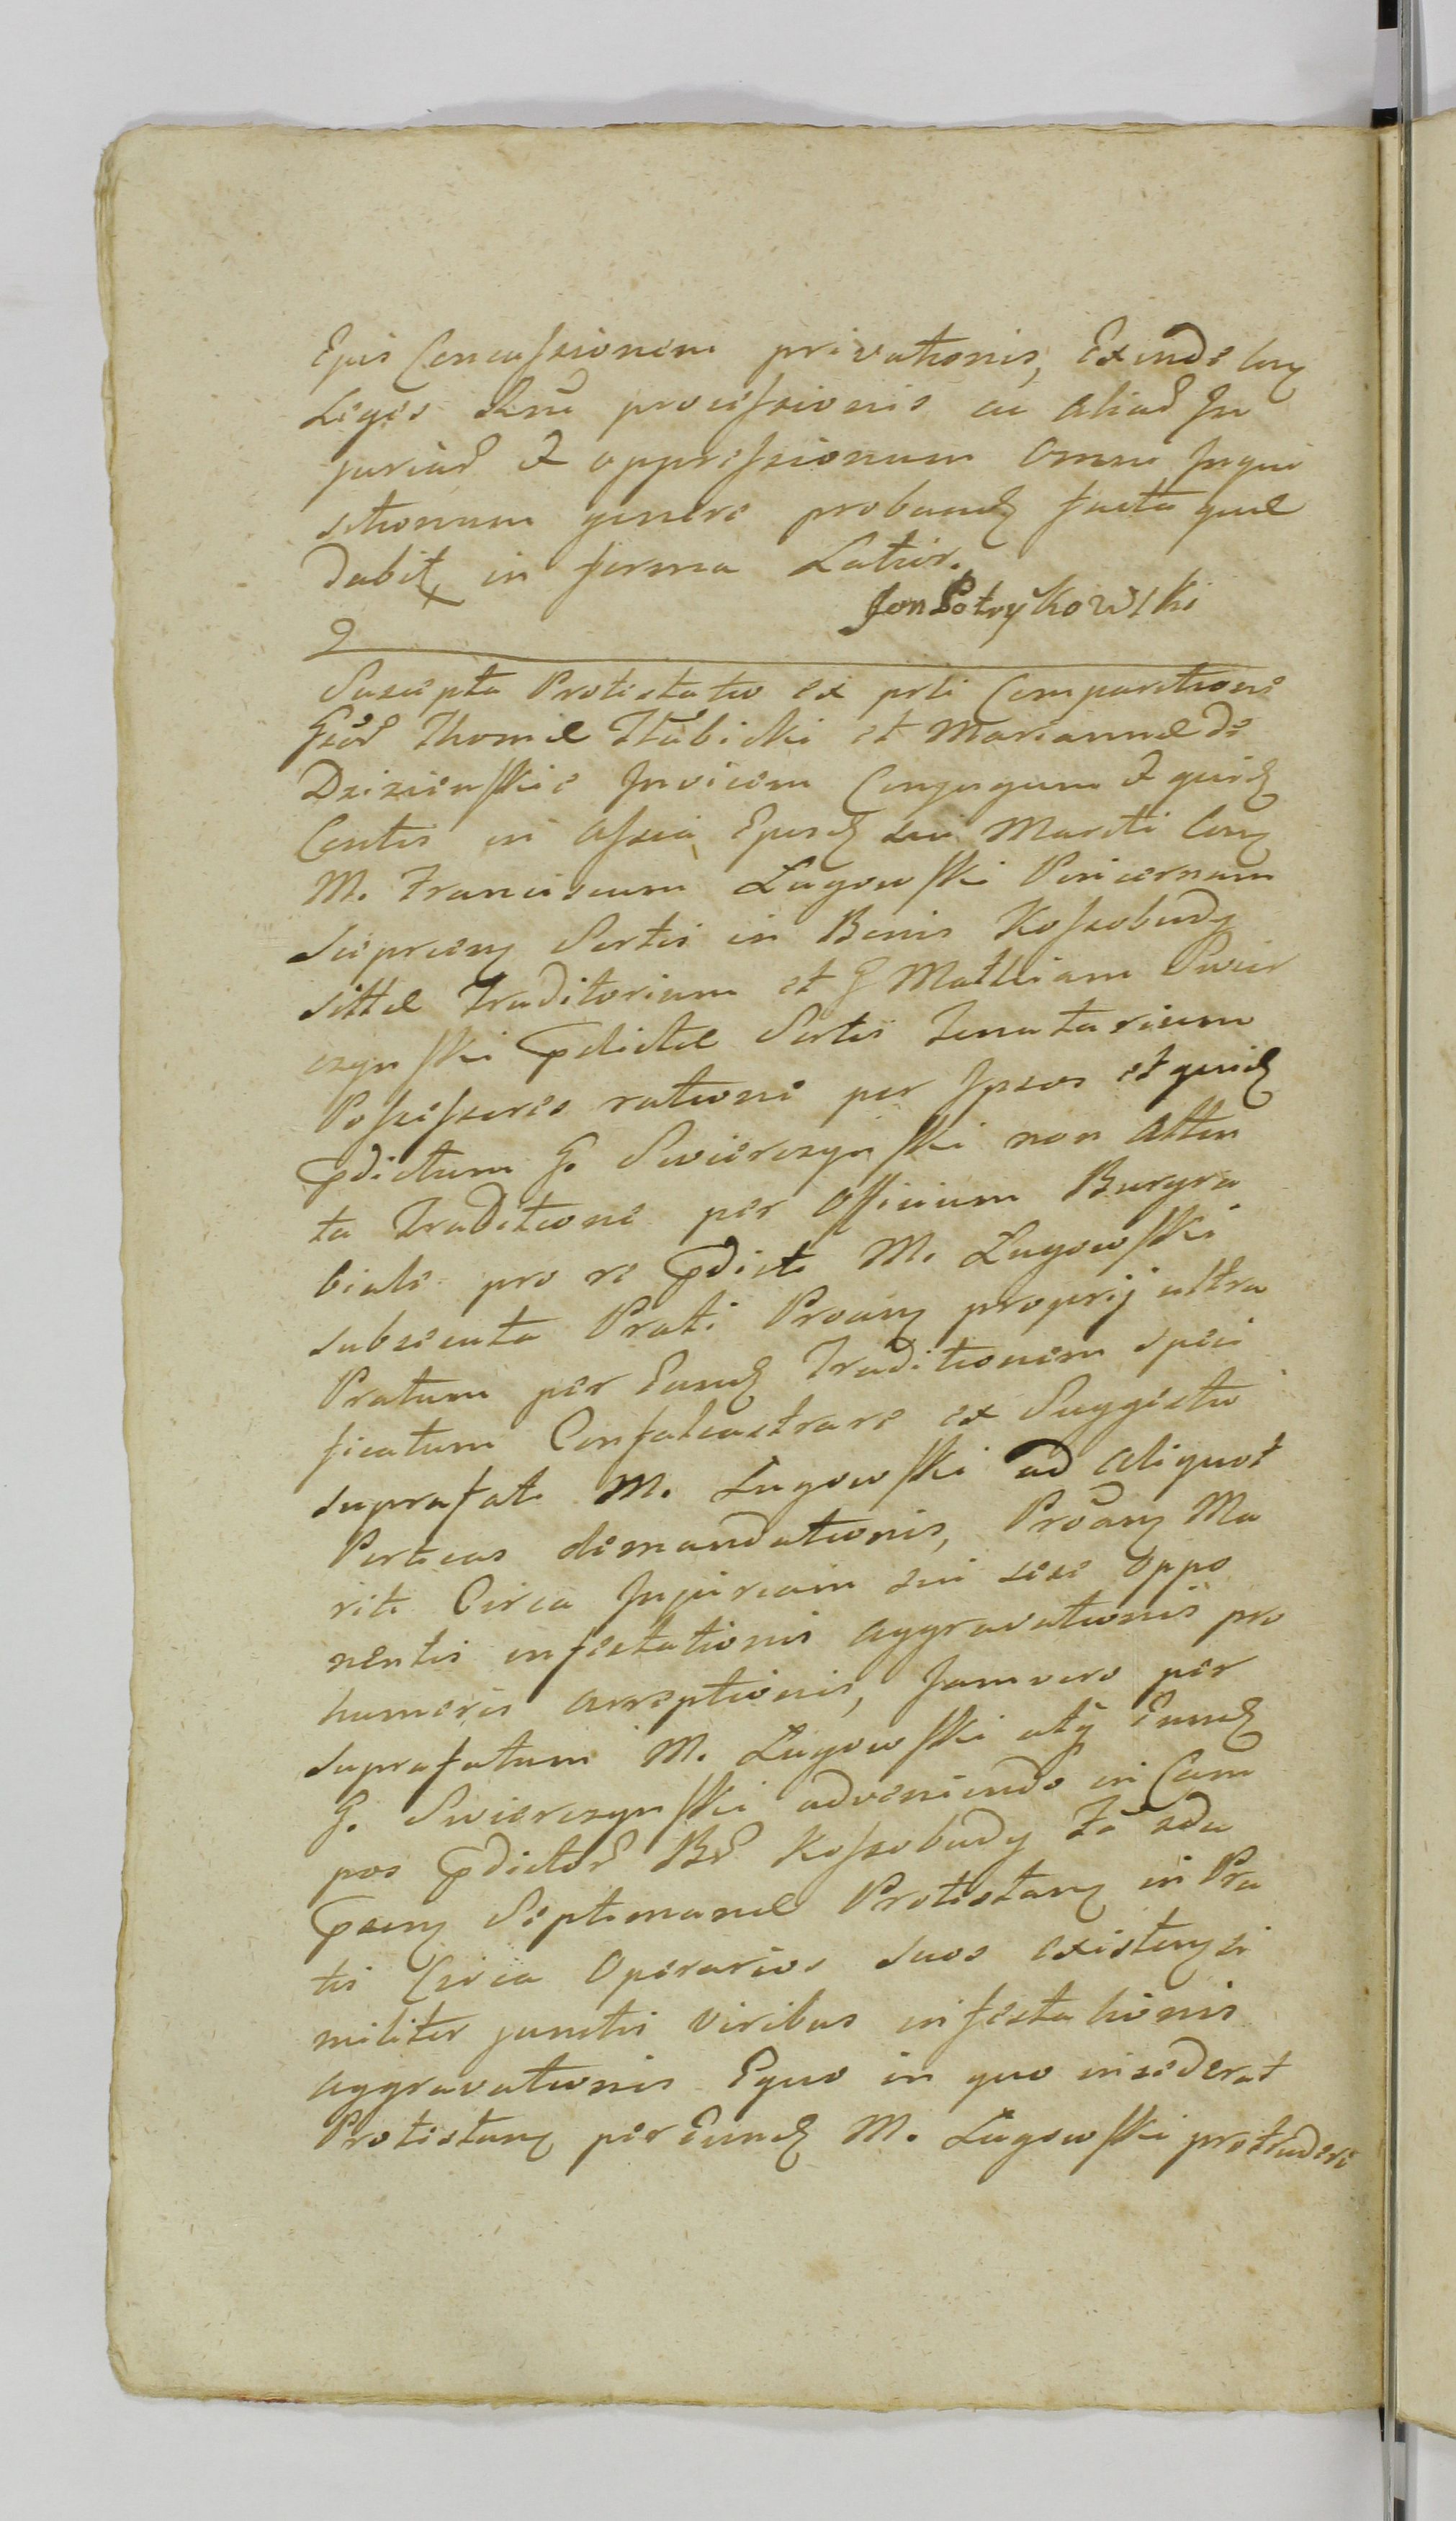 Ejus Concussionem privationis, Exinde
Leges Rni processionis ac aliar In
juriar & oppressionum omni Inqui
sitionum genere proband facta quæ
dabit in forma Latior.
Jon Potrykowski
Suscepta Protestatio ex prti Comparitione
Gsor Thomæ Tłubicki et Mariannæ de
Dzizienskie Invicem Conjugum & quid
Centis in Assia Ejusd sui Mariti Con
M. Franciscum Lugowski Pincernam
Sieprcen Sortis in Bonis Kossobudy
sittæ Traditorium et G Mathiam Swier
czynski pdictæ Sortis Tenutarium
Possessores ratione per Ipsos et quid
pdictum G. Swierczynski non atten
ta Traditione per Officium Burgra
biale pro re pdicti M. Lugowski
subsecuta Prati Proan proprij ultra
Pratum per Eund Traditionem speci
ficatum Confalcastrare ex Suggestu
suprafati M. Lugowski ad aliquot
Perticas demandationis, Proan Ma
riti Circa Injuriam sui sese oppo
nentis infestationis aggravationis pro
humeris arreptionis, Jamvero per
suprafatum M. Lugowski atq Eund
G. Swierczynski adveniendo in Cam
pos pdictor Br Kossobudy Fe 2da
psen Septimanæ Protestan in Pra
tis Circa Operarios suos existen si
militer junctis viribus infestationis
aggravationis Equo in quo insederat
Protestan per Eund M. Lugowski protrudere